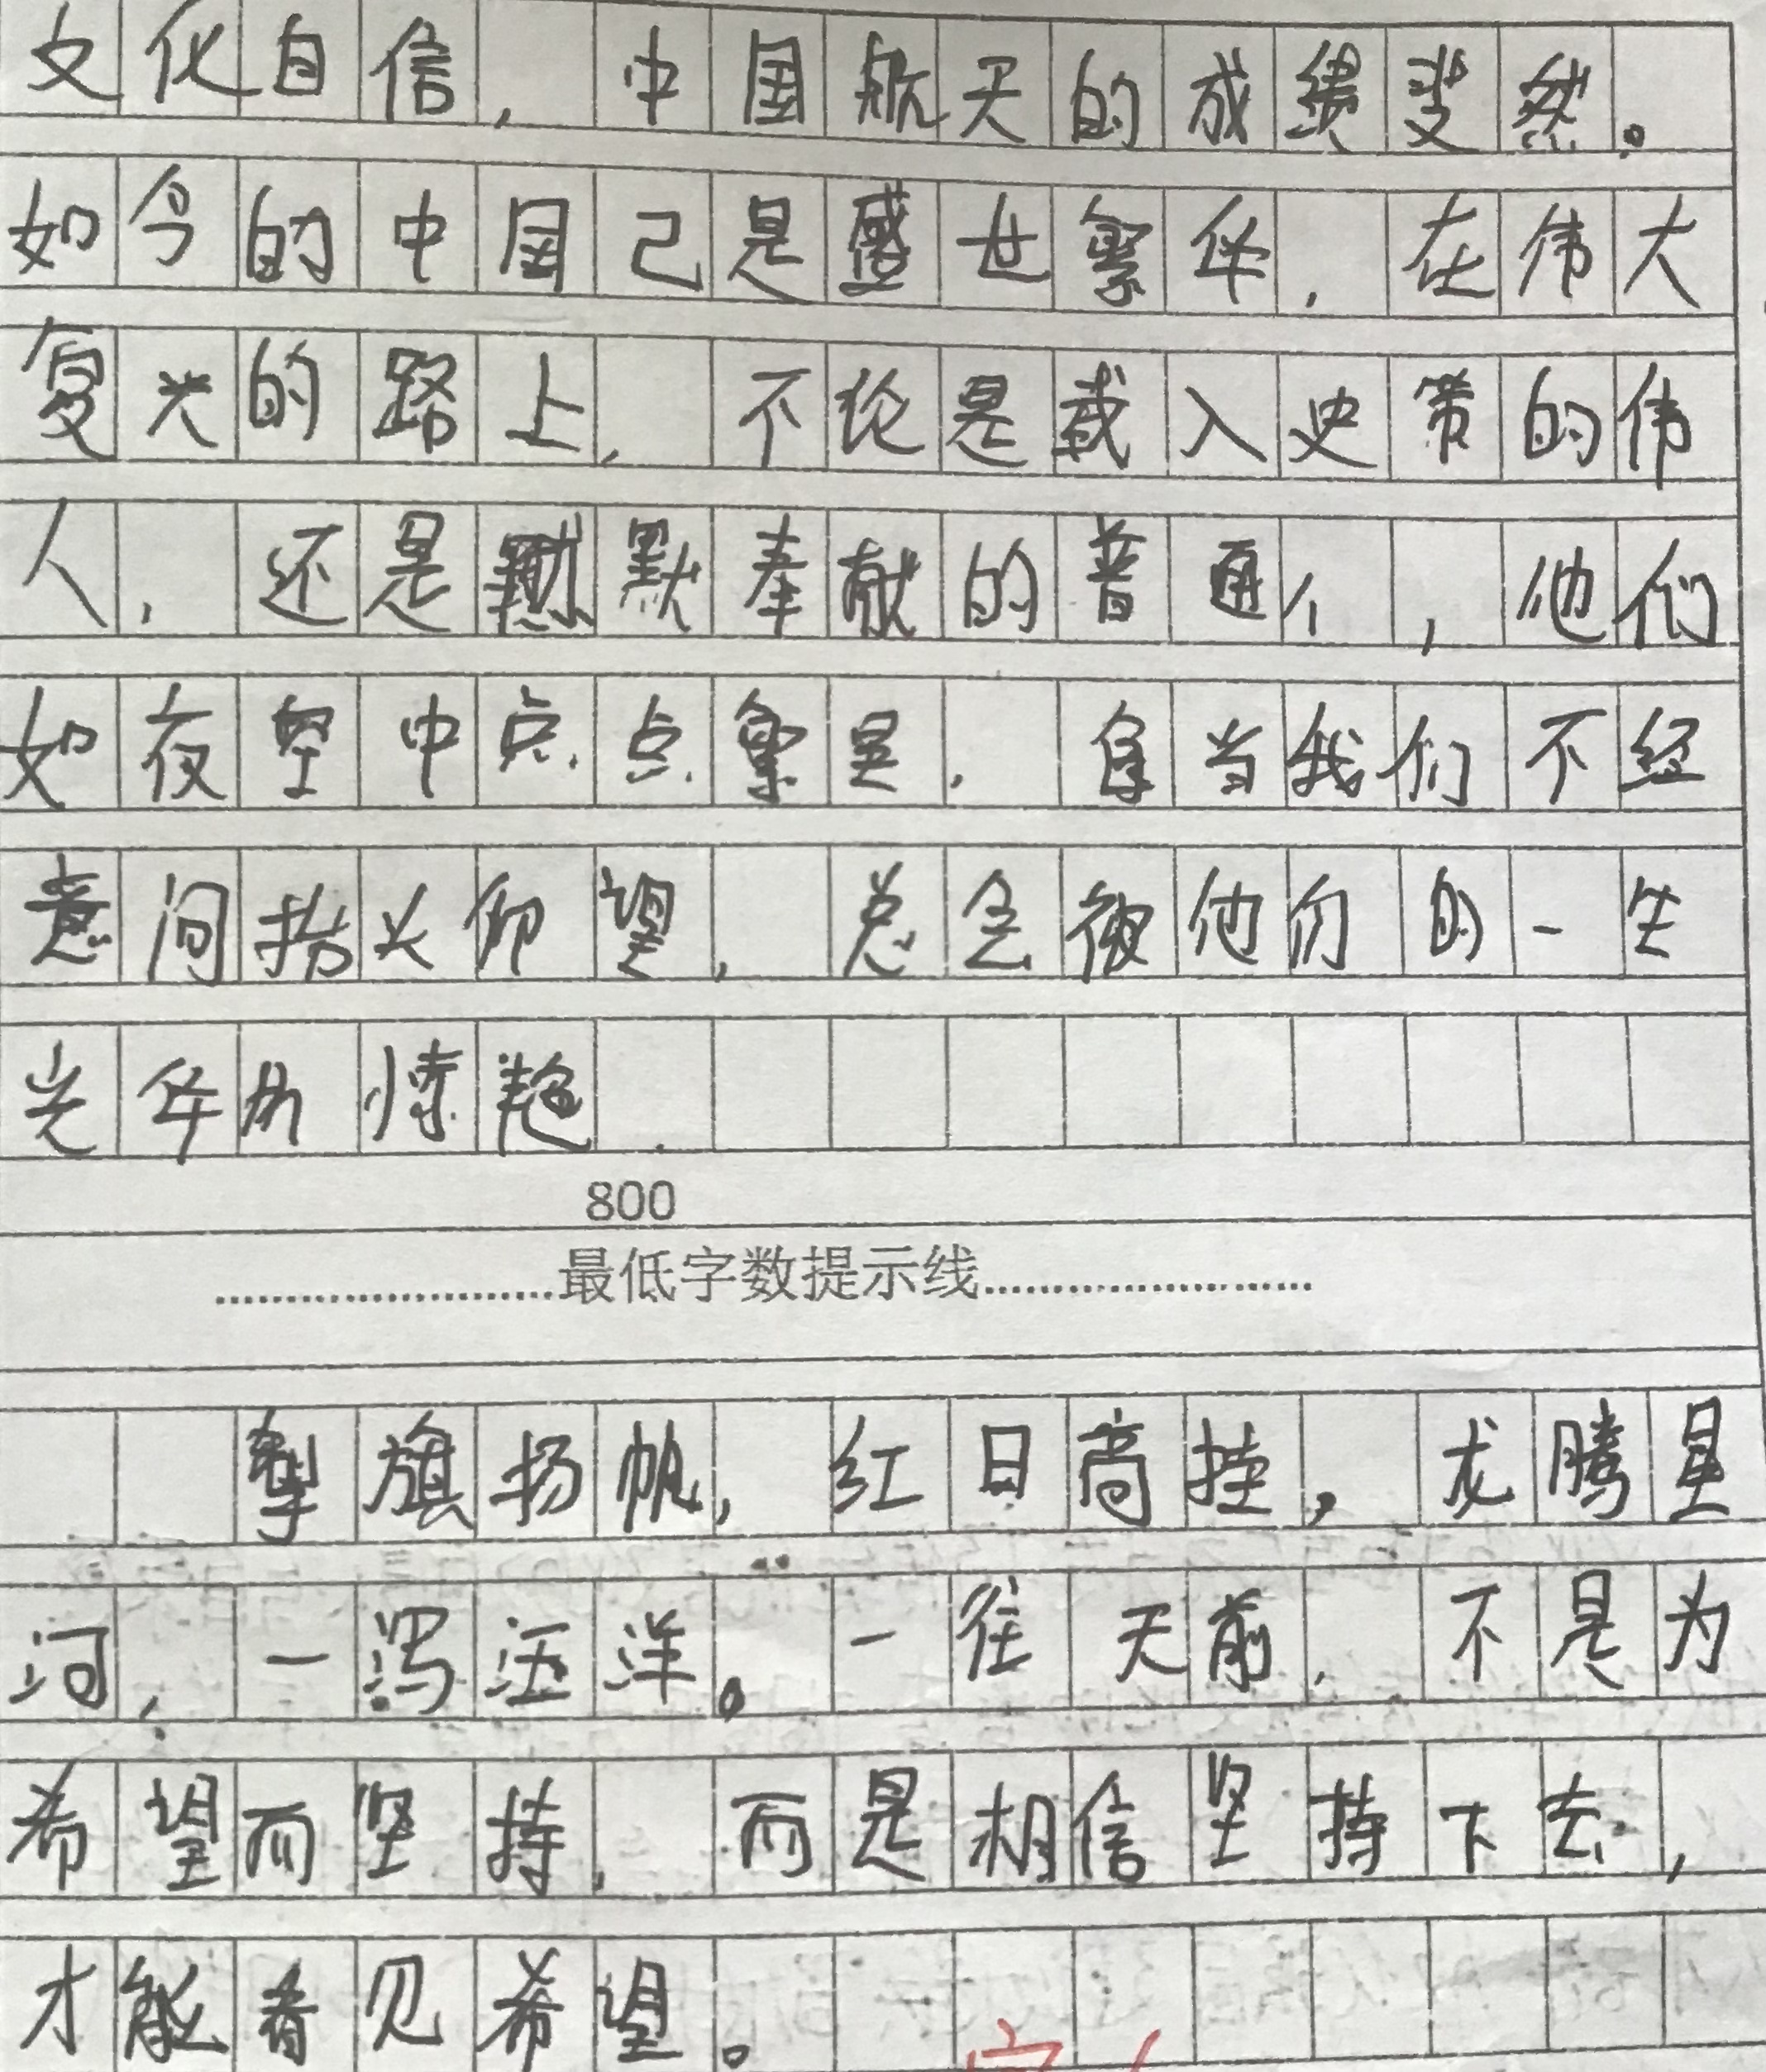 文化自信，中国航天的成绩斐然。
如今的中国已是盛世繁华，在伟大
复兴的路上，不论是载入史册的伟
人，还是默默奉献的普通人，他们
如夜空中点点繁星，每当我们不经
意间抬头仰望，总会被他们的一生
光华所惊艳.
800
最低字数提示线
擎旗扬帆，红日高挂，龙腾星
河，一泻汪洋。一往无前，不是为
希望而坚持，而是相信坚持下去，
才能看见希望。